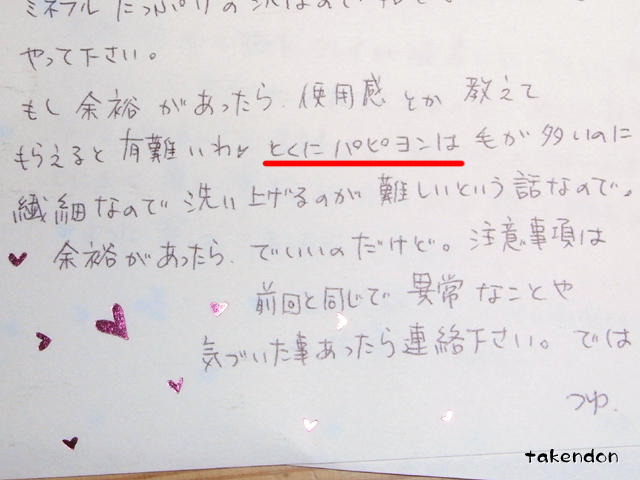 ミネラルたっぷりの泥なので
やって下さい。
もし余裕があったら、使用感とか教えて
もらえると有難いわ♪とくにパピヨンは毛が多いのに
繊細なので洗い上げるのが難しいという話なので。
余裕があったら、でいいのだけど。注意事項は
前回と同じで異常なことや
気づいた事あったら連絡下さい。では
つゆ.
takendon